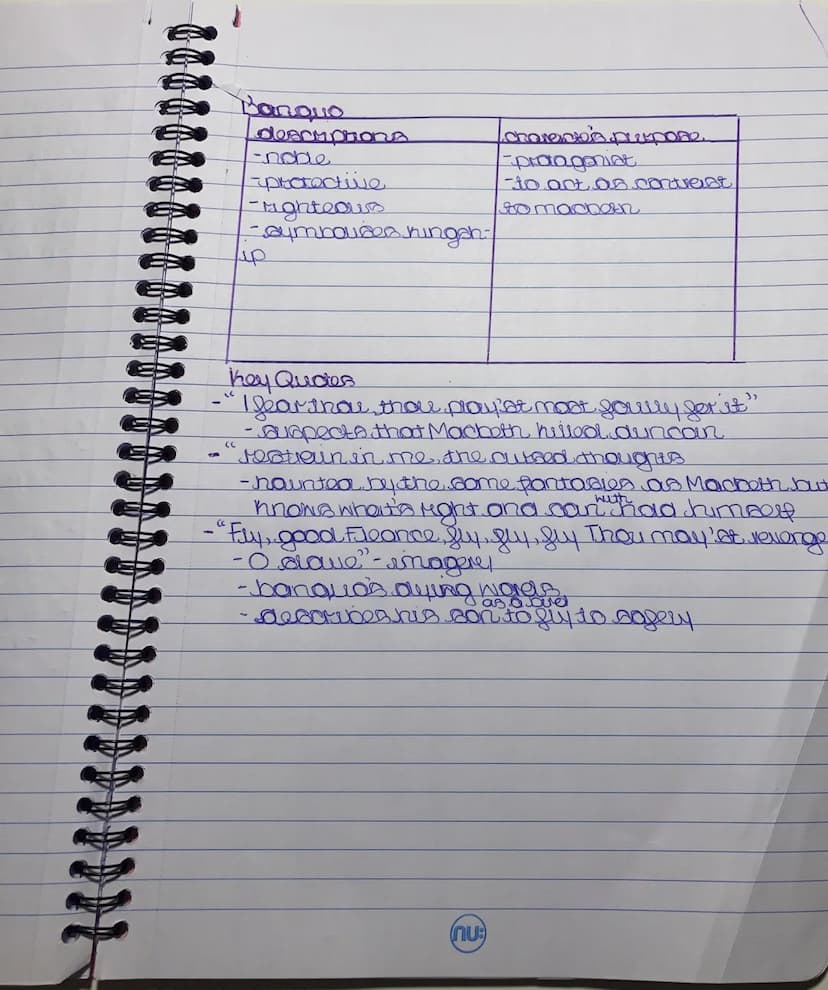 Banquo
descriptions character's purpose
-noble -protagonist
-protective -to act as contrast
-righteous to macbeth
-symbolises kingsh-
ip
Key Quotes
-"I fear thou, thou play'st most foully for it"
-suspects that Macbeth killed duncan
-"restrain in me, the cursed thoughts
-haunted by the same fantasies as Macbeth but
with
knows what's right and can had himself
-"Fly, good Fleance, fly, fly, fly Thou may'st revenge
-O slave" -imagery
-banquo's dying words
as a bird
-describes his son to fly to safety
nu: